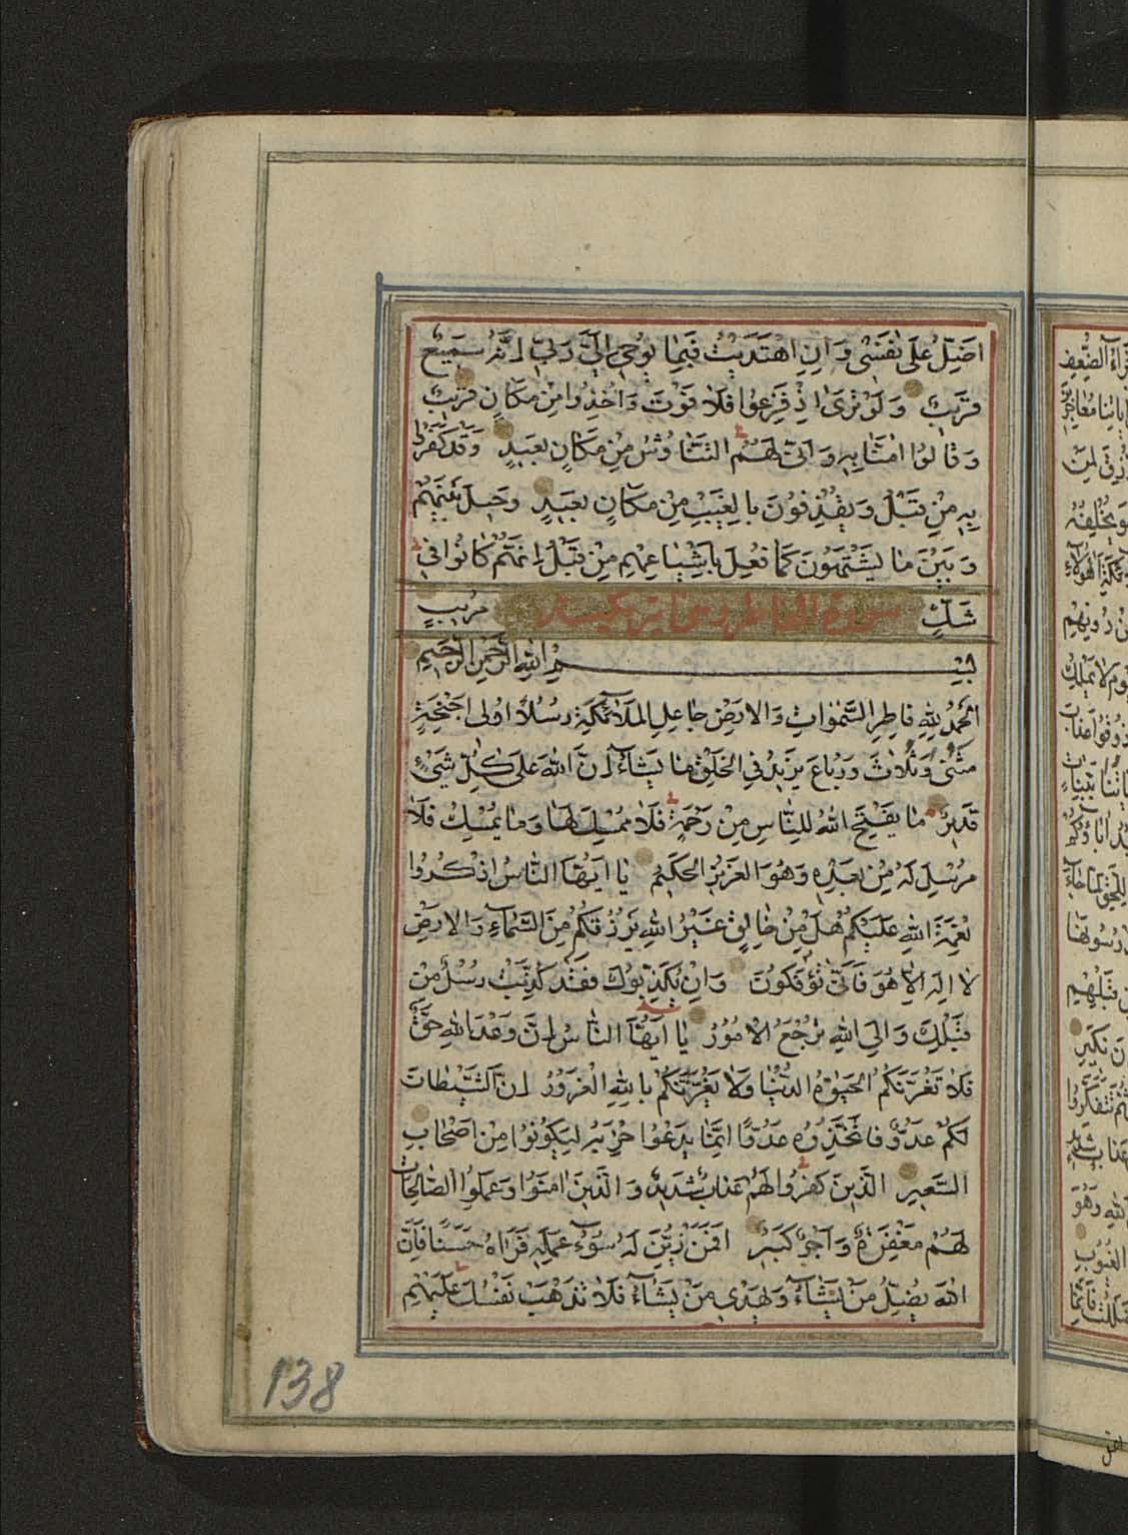 اَضِلُّ عَلٰى نَفْسٖى وَاِنِ اهْتَدَيْتُ فَبِمَا يُوحٖى اِلَيَّ رَبّٖى اِنَّهُ سَمٖيعٌ
قَرٖيبٌ وَلَوْ تَرٰى اِذْ فَزِعُوا فَلَا فَوْتَ وَاُخِذُوا مِنْ مَكَانٍ قَرٖيبٍ
وَقَالُوا اٰمَنَّا بِهٖ وَاَنّٰى لَهُمُ التَّنَاوُشُ مِنْ مَكَانٍ بَعٖيدٍ وَقَدْ كَفَرُوا
بِهٖ مِنْ قَبْلُ وَيَقْذِفُونَ بِالْغَيْبِ مِنْ مَكَانٍ بَعٖيدٍ وَحٖيلَ بَيْنَهُمْ
وَبَيْنَ مَا يَشْتَهُونَ كَمَا فُعِلَ بِاَشْيَاعِهِمْ مِنْ قَبْلُ اِنَّهُمْ كَانُوا فٖى
شَكٍّ سورة الفاطر مُرٖيبٍ
بِسْمِ اللّٰهِ الرَّحْمٰنِ الرَّحٖيمِ
اَلْحَمْدُ لِلّٰهِ فَاطِرِ السَّمٰوَاتِ وَالْاَرْضِ جَاعِلِ الْمَلَآئِكَةِ رُسُلًا اُولٖى اَجْنِحَةٍ
مَثْنٰى وَثُلَاثَ وَرُبَاعَ يَزٖيدُ فِى الْخَلْقِ مَا يَشَآءُ اِنَّ اللّٰهَ عَلٰى كُلِّ شَيْءٍ
قَدٖيرٌ مَا يَفْتَحِ اللّٰهُ لِلنَّاسِ مِنْ رَحْمَةٍ فَلَا مُمْسِكَ لَهَا وَمَا يُمْسِكْ فَلَا
مُرْسِلَ لَهُ مِنْ بَعْدِهٖ وَهُوَ الْعَزٖيزُ الْحَكٖيمُ يَا اَيُّهَا النَّاسُ اذْكُرُوا
نِعْمَةَ اللّٰهِ عَلَيْكُمْ هَلْ مِنْ خَالِقٍ غَيْرُ اللّٰهِ يَرْزُقُكُمْ مِنَ السَّمَآءِ وَالْاَرْضِ
لَا اِلٰهَ اِلَّا هُوَ فَاَنّٰى تُؤْفَكُونَ وَاِنْ يُكَذِّبُوكَ فَقَدْ كُذِّبَتْ رُسُلٌ مِنْ
قَبْلِكَ وَاِلَى اللّٰهِ تُرْجَعُ الْاُمُورُ يَا اَيُّهَا النَّاسُ اِنَّ وَعْدَ اللّٰهِ حَقٌّ
فَلَا تَغُرَّنَّكُمُ الْحَيٰوةُ الدُّنْيَا وَلَا يَغُرَّنَّكُمْ بِاللّٰهِ الْغَرُورُ اِنَّ الشَّيْطَانَ
لَكُمْ عَدُوٌّ فَاتَّخِذُوهُ عَدُوًّا اِنَّمَا يَدْعُوا حِزْبَهُ لِيَكُونُوا مِنْ اَصْحَابِ
السَّعٖيرِ اَلَّذٖينَ كَفَرُوا لَهُمْ عَذَابٌ شَدٖيدٌ وَالَّذٖينَ اٰمَنُوا وَعَمِلُوا الصَّالِحَاتِ
لَهُمْ مَغْفِرَةٌ وَاَجْرٌ كَبٖيرٌ اَفَمَنْ زُيِّنَ لَهُ سُوٓءُ عَمَلِهٖ فَرَاٰهُ حَسَنًا فَاِنَّ
اللّٰهَ يُضِلُّ مَنْ يَشَآءُ وَيَهْدٖى مَنْ يَشَآءُ فَلَا تَذْهَبْ نَفْسُكَ عَلَيْهِمْ
138